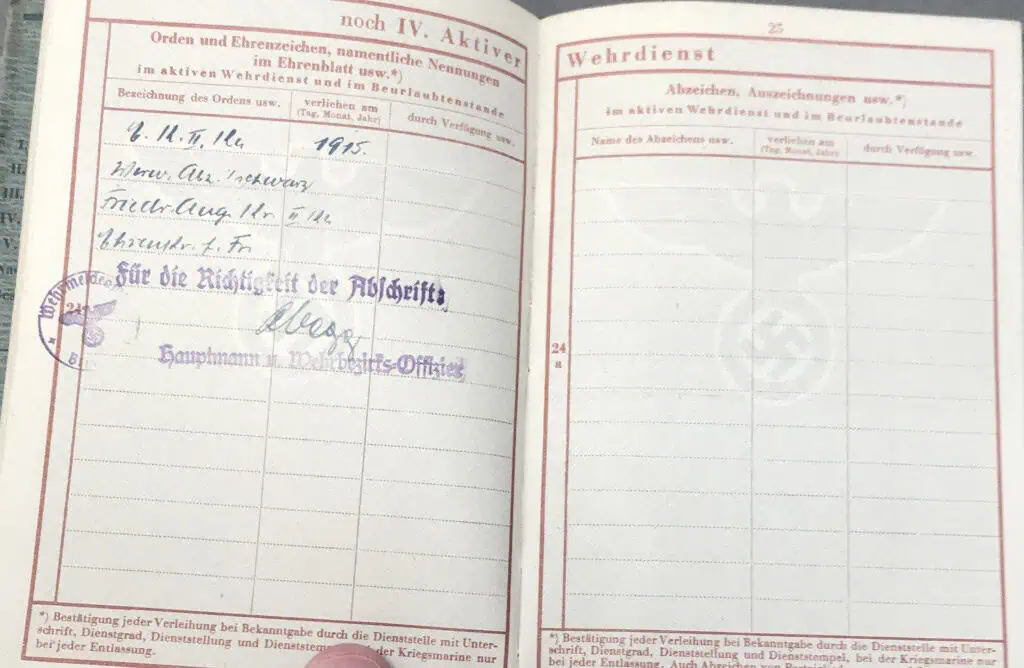 noch IV. Aktiver
Orden und Ehrenzeichen, namentliche Nennungen
im Ehrenblatt usw.*)
im aktiven Wehrdienst und im Beurlaubtenstande
Bezeichnung des Ordens usw.
verliehen am
(Tag, Monat, Jahr)
durch Verfügung usw.
E. K. II. Kl.
1915.
Verw. Abz. schwarz
Friedr. Aug. Kr. II Kl
Ehrenkr. f. Fr.
Für die Richtigkeit der Abschrift:
Hauptmann u. Wehrbezirks-Offizier
Wehrmelde
24
*) Bestätigung jeder Verleihung bei Bekanntgabe durch die Dienststelle mit Unter-
schrift, Dienstgrad, Dienststellung und Dienststem der Kriegsmarine nur
bei jeder Entlassung.
25
Wehrdienst
Abzeichen, Auszeichnungen usw.*)
im aktiven Wehrdienst und im Beurlaubtenstande
Name des Abzeichens usw.
verliehen am
(Tag, Monat, Jahr)
durch Verfügung usw.
24
a
*) Bestätigung jeder Verleihung bei Bekanntgabe durch die Dienststelle mit Unter-
schrift, Dienstgrad, Dienststellung und Dienststempel, bei der Kriegsmarine nur
bei jeder Entlassung. Auch Abzeichen von